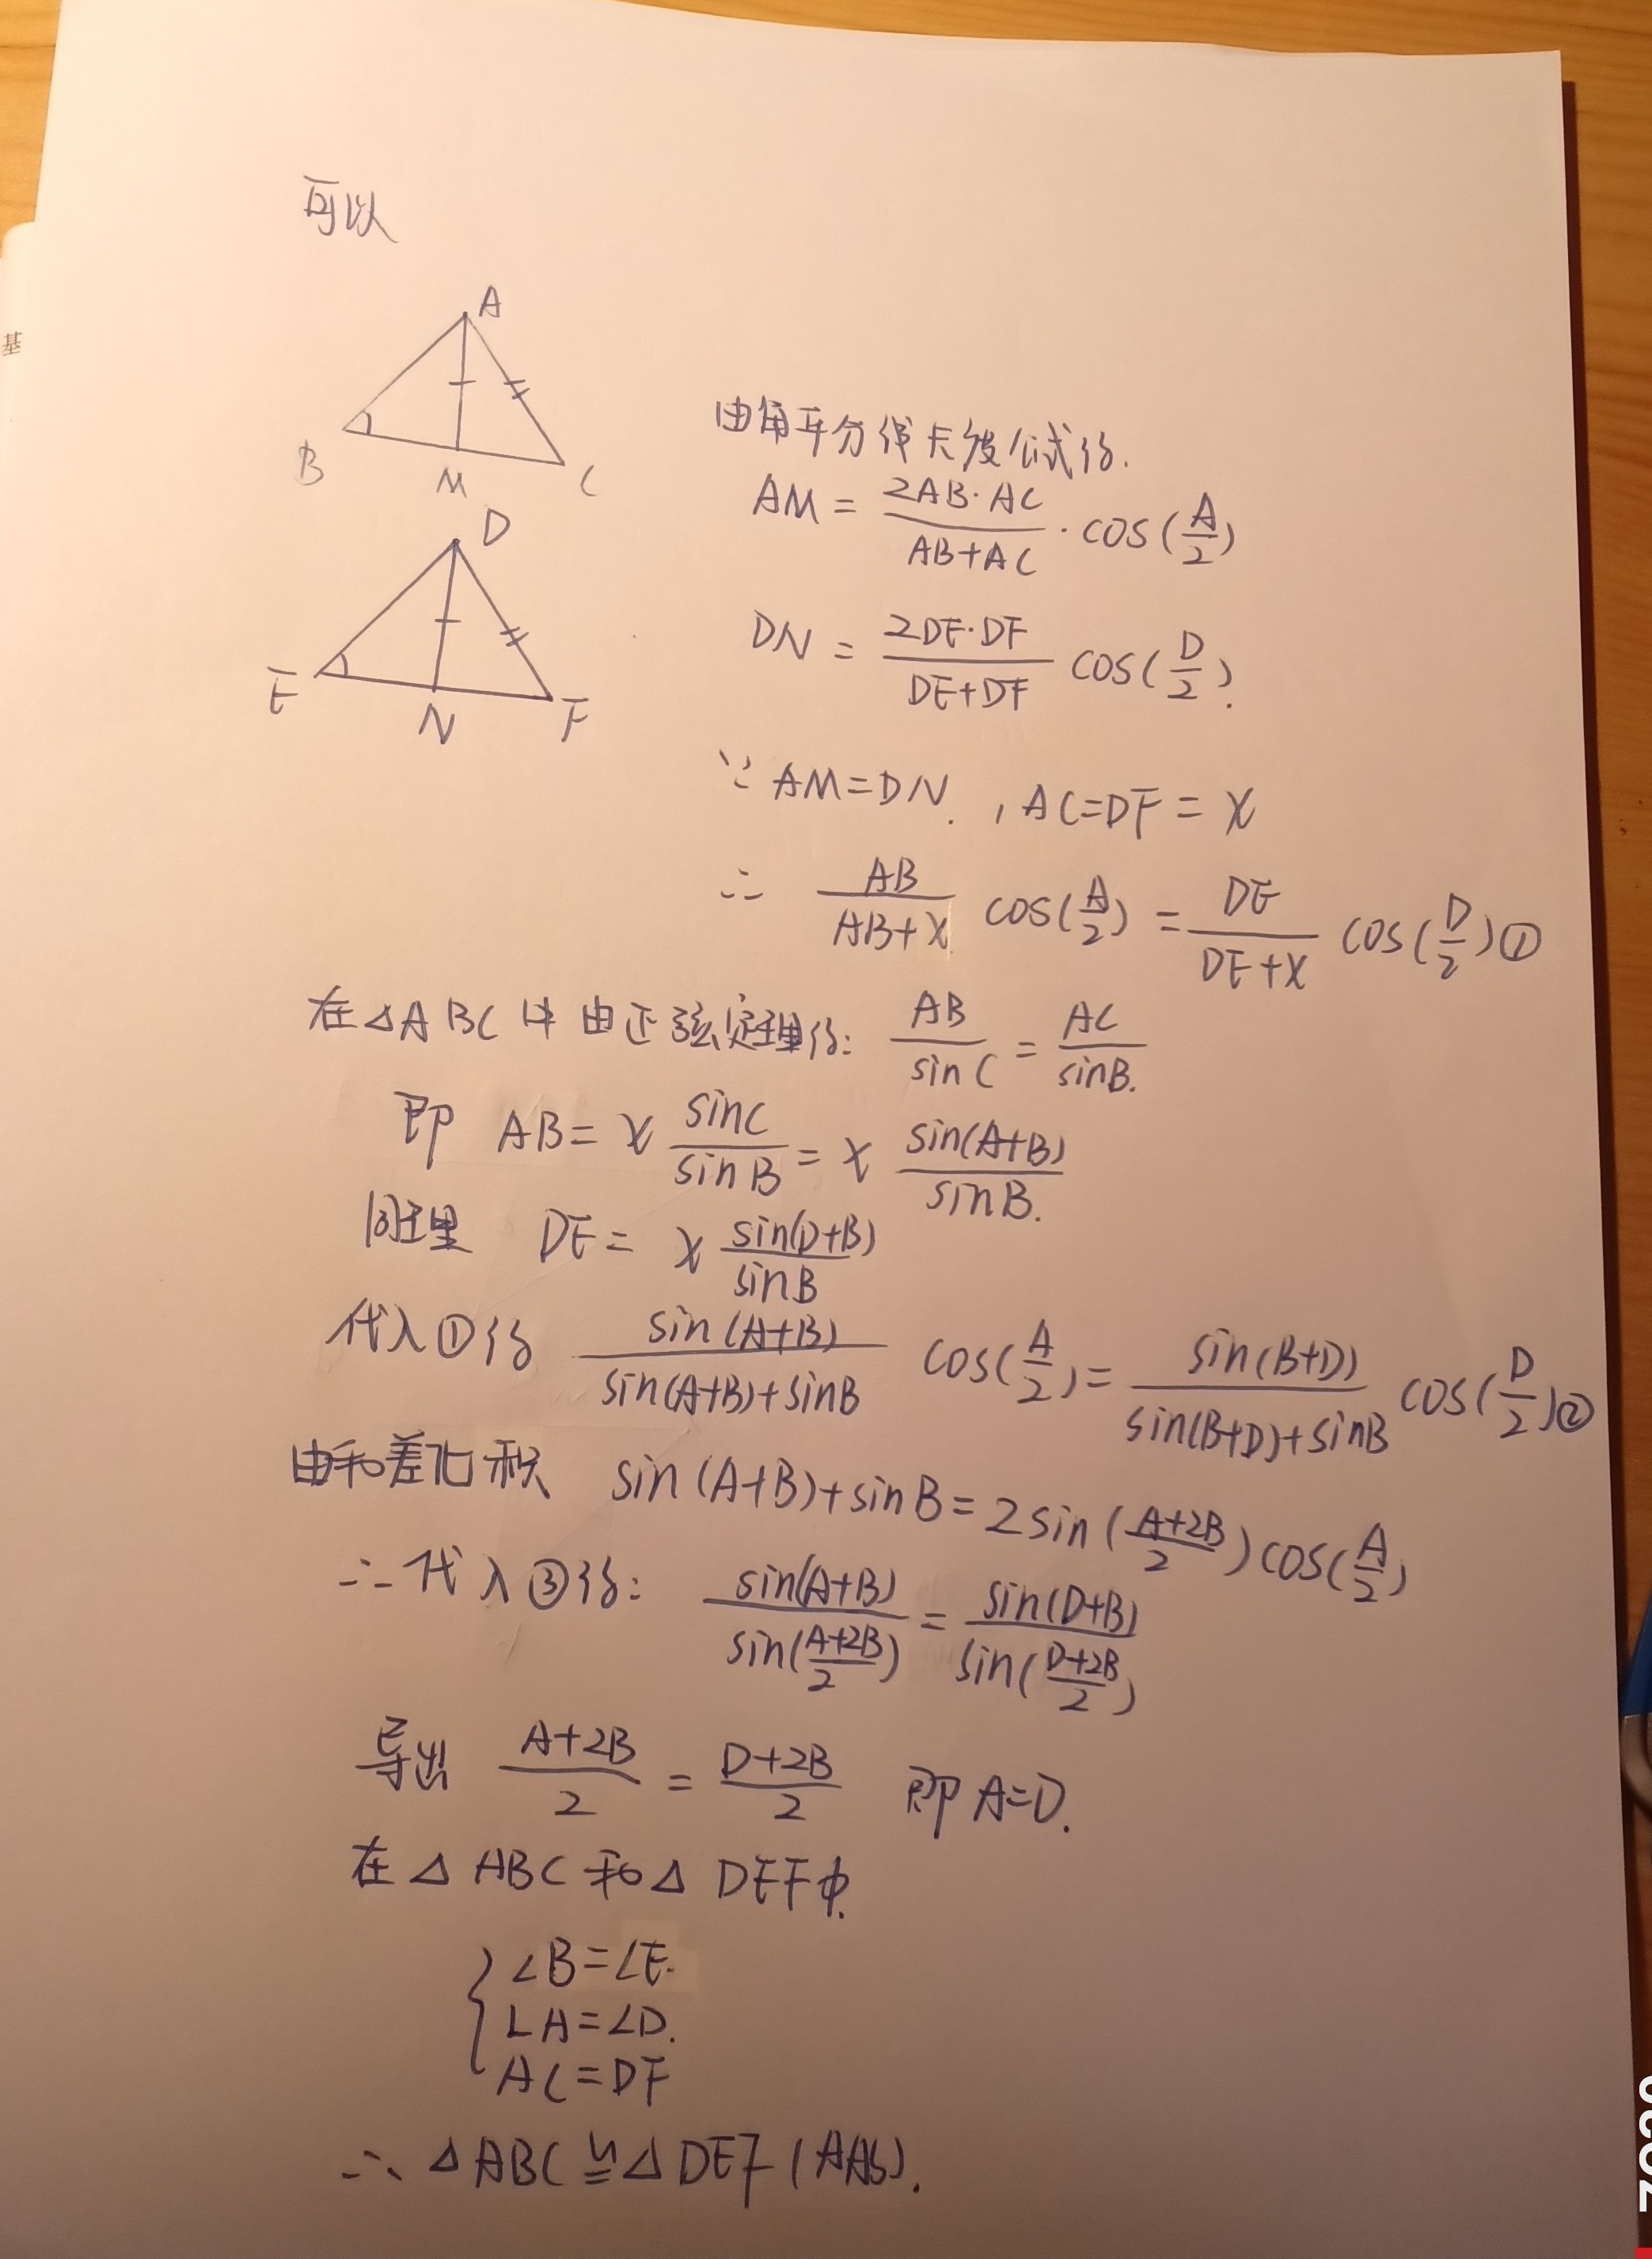 可以
A
B
M
C
D
E
N
F
基
由角平分线长度公式得.
AM = \frac{2AB·AC}{AB+AC} · cos(\frac{A}{2})
DN = \frac{2DE·DF}{DE+DF} cos(\frac{D}{2}).
∵ AM=DN. , AC=DF = x
∴ \frac{AB}{AB+x} cos(\frac{A}{2}) = \frac{DE}{DE+x} cos(\frac{D}{2}) ①
在△ABC中由正弦定理得: \frac{AB}{sinC} = \frac{AC}{sinB}.
即 AB = x \frac{sinC}{sinB} = x \frac{sin(A+B)}{sinB}.
同理 DE = x \frac{sin(D+B)}{sinB}
代入①得 \frac{sin(A+B)}{sin(A+B)+sinB} cos(\frac{A}{2}) = \frac{sin(B+D)}{sin(B+D)+sinB} cos(\frac{D}{2}) ②
由和差化积 sin(A+B)+sinB = 2sin(\frac{A+2B}{2})cos(\frac{A}{2})
∴代入③得: \frac{sin(A+B)}{sin(\frac{A+2B}{2})} = \frac{sin(D+B)}{sin(\frac{D+2B}{2})}
导出 \frac{A+2B}{2} = \frac{D+2B}{2} 即 A=D.
在△ABC和△DEF中.
∠B=∠E.
∠A=∠D.
AC=DF
∴ △ABC≌△DEF(AAS).